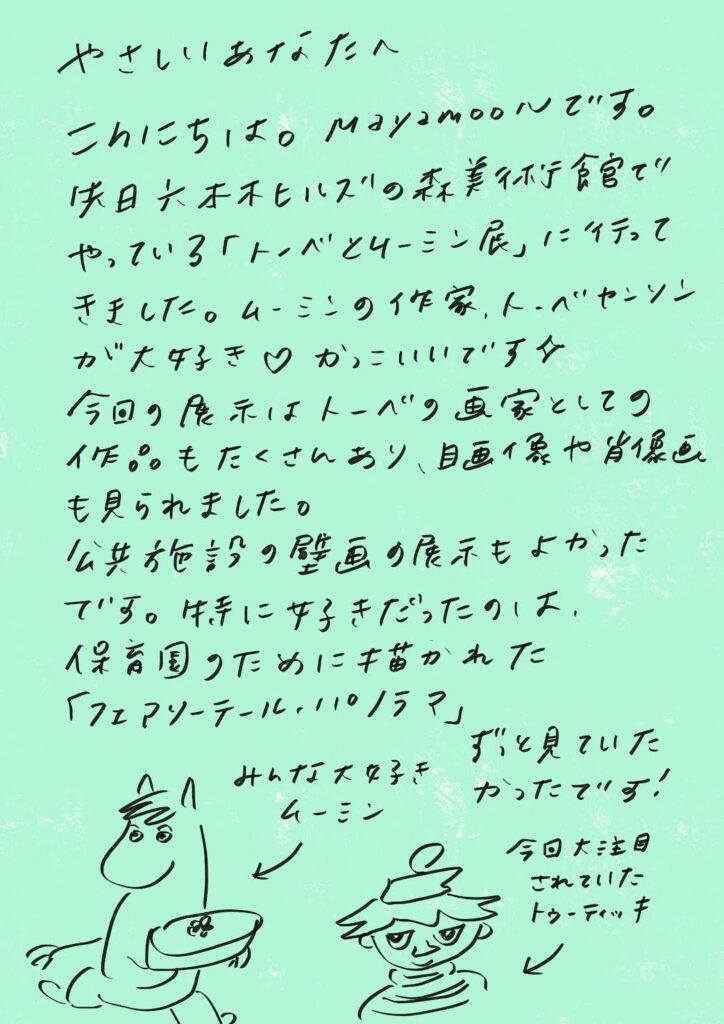 やさしいあなたへ
こんにちは。Mayamoonです。
先日六本木ヒルズの森美術館で
やっている「トーベとムーミン展」に行って
きました。ムーミンの作家、トーベヤンソン
が大好き♡かっこいいです☆
今回の展示はトーベの画家としての
作品もたくさんあり、自画像や肖像画
も見られました。
公共施設の壁画の展示もよかった
です。特に好きだったのは、
保育園のために描かれた
「フェアリーテール・パノラマ」
ずっと見ていた
かったです!
みんな大好き
ムーミン
今回大注目
されていた
トゥーティッキ